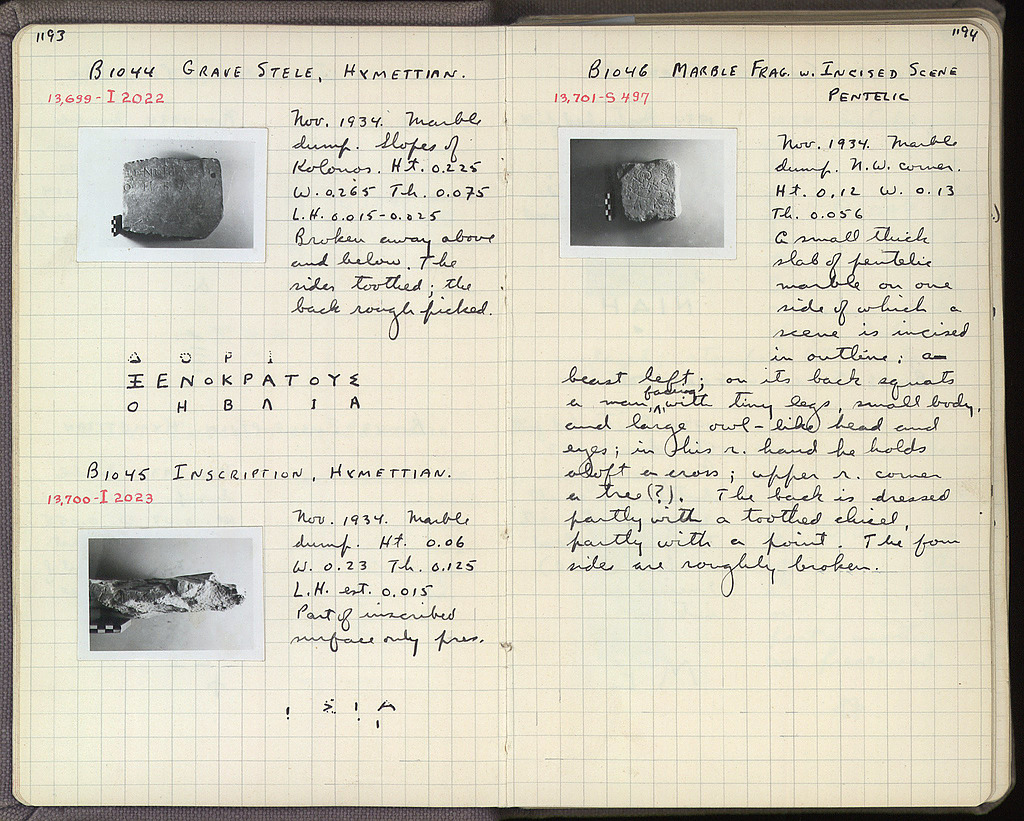 1193
B1044 GRAVE STELE, HYMETTIAN.
13,699-I 2022
Nov. 1934. Marble
dump. Slopes of
Kolonos. Ht. 0.225
W. 0.265 Th. 0.075
L.H. 0.015-0.025
Broken away above
and below. The
sides toothed; the
back rough picked.
Δ Ο Ρ Ι
ΞΕΝΟΚΡΑΤΟΥΣ
Ο Η Β Λ Ι Α
B1045 INSCRIPTION, HYMETTIAN.
13,700-I 2023
Nov. 1934. Marble
dump. Ht. 0.06
W. 0.23 Th. 0.125
L.H. est. 0.015
Part of inscribed
surface only pres.
1194
B1046 MARBLE FRAG. W. INCISED SCENE
PENTELIC
13,701-S 497
Nov. 1934. Marble
dump. N.W. corner.
Ht. 0.12 W. 0.13
Th. 0.056
A small thick
slab of pentelic
marble on one
side of which a
scene is incised
in outline; a
beast left; on its back squats
a man, facing, with tiny legs, small body,
and large owl-like head and
eyes; in his r. hand he holds
aloft a cross; upper r. corner
a tree (?). The back is dressed
partly with a toothed chisel,
partly with a point. The four
sides are roughly broken.